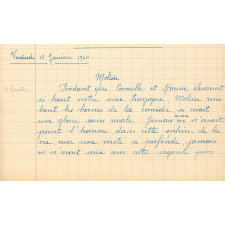 Vendredi 12 Janvier 1940
Molière
Pendant que Corneille et Racine élevaient
si haut notre scène tragique Molière recu
lait les bornes de la comédie si avait
une gloire sans rivale. Jamais on n'avait
peint l'homme dans cette sphère de la
vie avec une vérité si profonde jamais
on n'avait